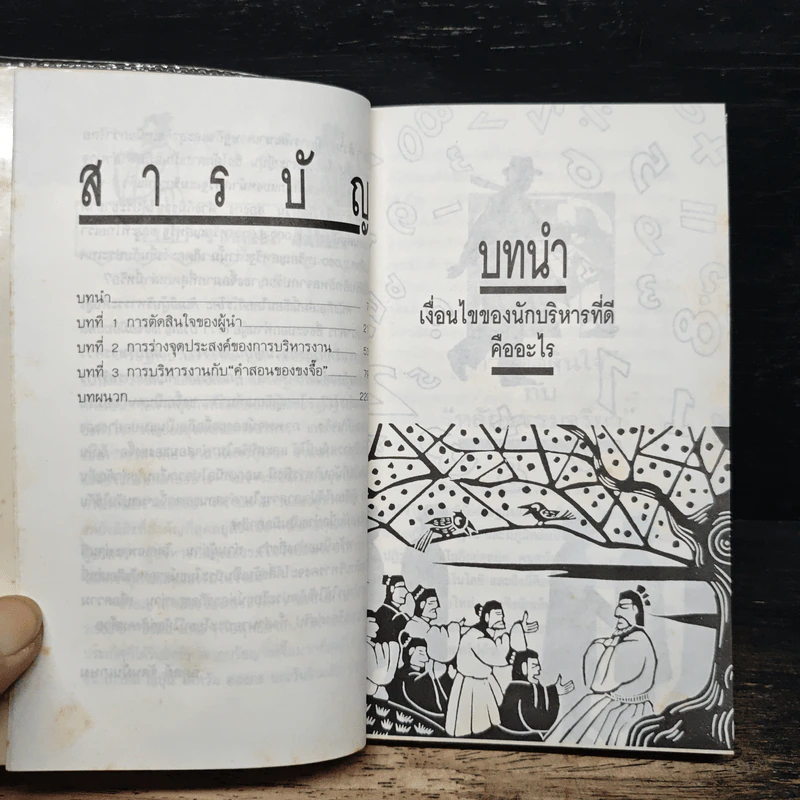 สารบัญ
บทนำ
บทที่ 1 การตัดสินใจของผู้นำ
บทที่ 2 การร่างจุดประสงค์ของการบริหารงาน
บทที่ 3 การบริหารงานกับ“คำสอนของขงจื๊อ”
บทผนวก
บทนำ
เงื่อนไขของนักบริหารที่ดี
คืออะไร